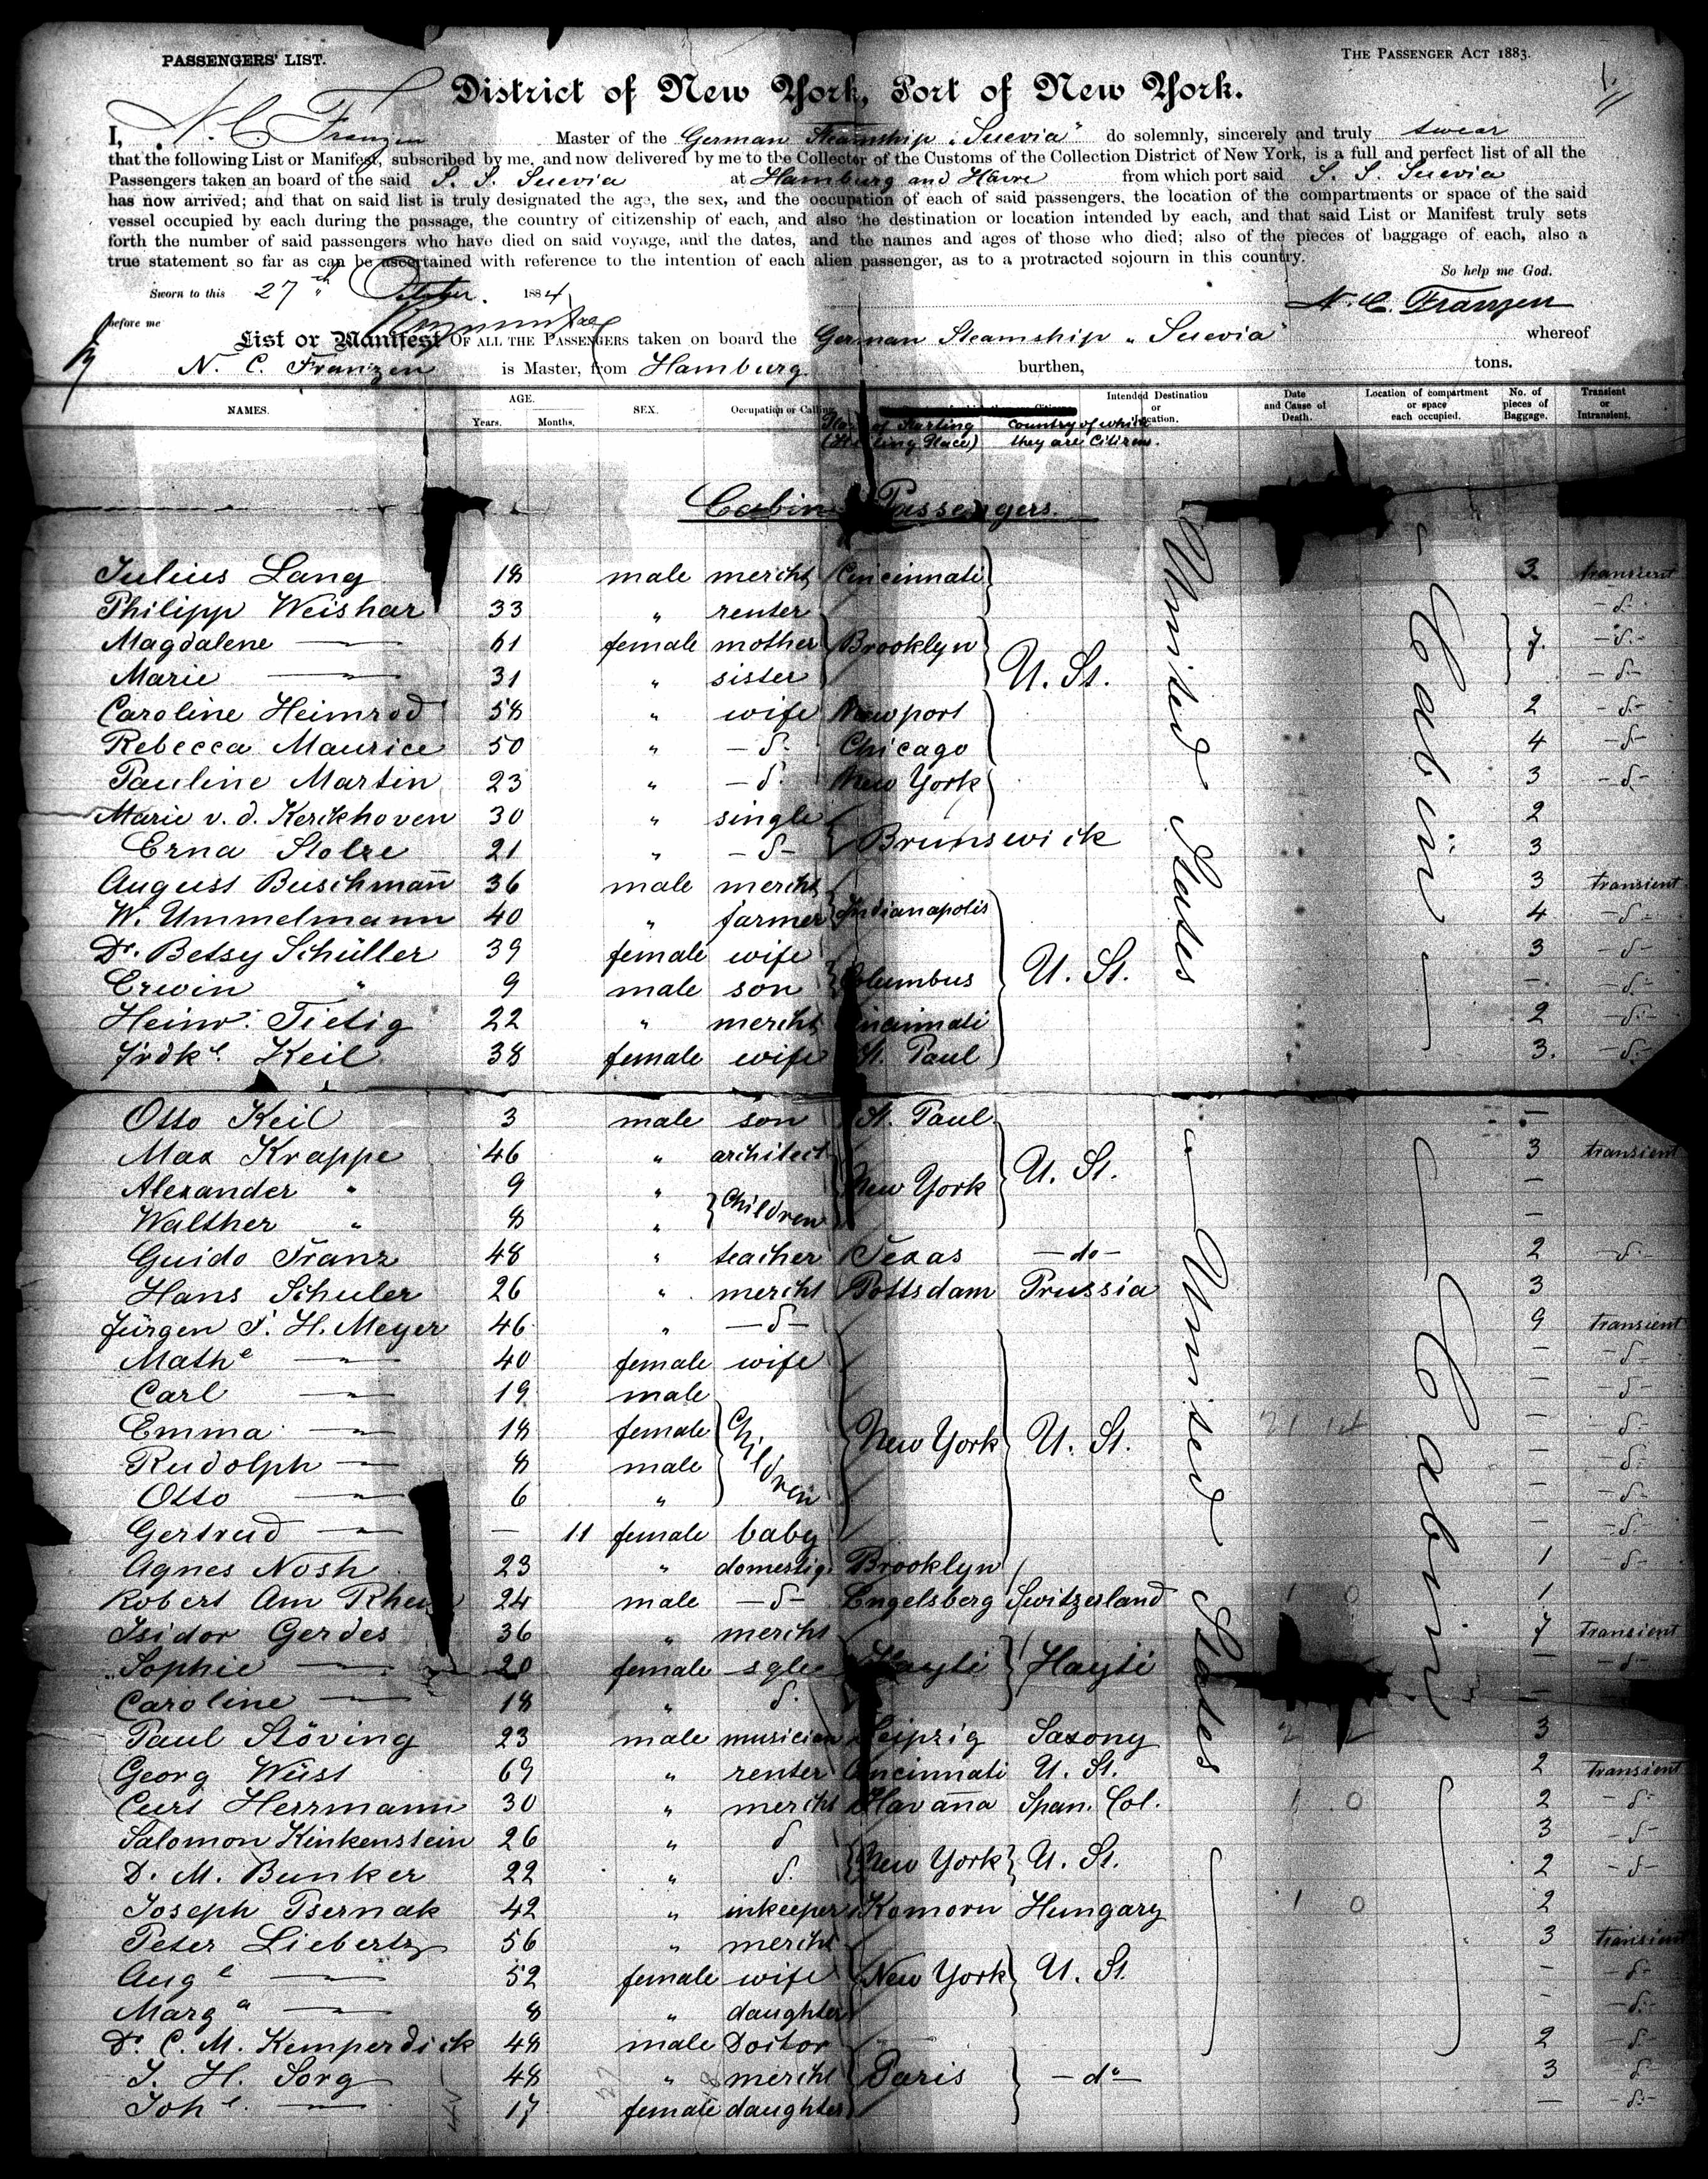 PASSENGERS' LIST.
THE PASSENGER ACT 1883.
District of New York, Port of New York.
I, N. C. Franzen Master of the German Steamship „Suevia" do solemnly, sincerely and truly swear
that the following List or Manifest, subscribed by me, and now delivered by me to the Collector of the Customs of the Collection District of New York, is a full and perfect list of all the
Passengers taken an board of the said S. S. Suevia at Hamburg and Havre from which port said S. S. Suevia
has now arrived; and that on said list is truly designated the age, the sex, and the occupation of each of said passengers, the location of the compartments or space of the said
vessel occupied by each during the passage, the country of citizenship of each, and also the destination or location intended by each, and that said List or Manifest truly sets
forth the number of said passengers who have died on said voyage, and the dates, and the names and ages of those who died; also of the pieces of baggage of each, also a
true statement so far as can be ascertained with reference to the intention of each alien passenger, as to a protracted sojourn in this country.
So help me God.
Sworn to this 27th October. 1884
N. C. Franzen
before me
List or Manifest OF ALL THE PASSENGERS taken on board the German Steamship „Suevia" whereof
N. C. Franzen is Master, from Hamburg burthen, tons.
NAMES. AGE. Years. Months. SEX. Occupation or Calling. Place of Starting (Starting Place) Country of which they are Citizens. Intended Destination or Location. Date and Cause of Death. Location of compartment or space each occupied. No. of pieces of Baggage. Transient or Intransient.
Cabin Passengers.
United States
Cabin
Julius Lang 18 male mercht Cincinnati 3. transient
Philipp Weishar 33 „ renter -d-
Magdalene — 61 female mother Brooklyn U. St. 7. -d-
Marie — 31 „ sister -d-
Caroline Heimrod 58 „ wife Newport 2 -d-
Rebecca Maurice 50 „ -d- Chicago 4 -d-
Pauline Martin 23 „ -d- New York 3 -d-
Marie v. d. Kerkhoven 30 „ single 2
Erna Stolze 21 „ -d- Brunswick 3
August Buschmañ 36 male mercht 3 transient
W. Ummelmann 40 „ farmer Indianapolis 4 -d-
Dr. Betsy Schüller 39 female wife 3 -d-
Erwin „ 9 male son Columbus U. St. - -d-
Heinr. Tietig 22 „ mercht Cincinnati 2 -d-
Frdke. Keil 38 female wife St. Paul 3. -d-
Otto Keil 3 male son St. Paul —
Max Krappe 46 „ architect 3 transient
Alexander „ 9 „ New York U. St. —
Walther „ 8 „ Children —
Guido Franz 48 „ teacher Texas -do- 2 -d-
Hans Schuler 26 „ mercht Pottsdam Prussia 3
Jürgen F. H. Meyer 46 „ -d- 9 transient
Mathe — 40 female wife — -d-
Carl — 19 male — -d-
Emma — 18 female Children New York U. St. — -d-
Rudolph — 8 male — -d-
Otto — 6 „ — -d-
Gertrud — — 11 female baby — -d-
Agnes Nosh 23 „ domestig. Brooklyn 1 -d-
Robert Am Rhein 24 male -d- Engelsberg Switzerland 1
Isidor Gerdes 36 „ mercht 7 transient
Sophie — 20 female sgle Hayti Hayti — -d-
Caroline — 18 „ d. —
Paul Stöving 23 male musician Leipzig Saxony 3
Georg Wüst 69 „ renter Cincinnati U. St. 2 transient
Curt Herrmann 30 „ mercht Havaña Span. Col. 2 -d-
Salomon Kinkenstein 26 „ d 3 -d-
D. M. Bunker 22 „ d. New York U. St. 2 -d-
Joseph Psernak 42 „ inkeeper Komorn Hungary 2
Peter Liebertz 56 „ mercht 3 transient
Auge — 52 female wife New York U. St. — -d-
Marga — 8 „ daughter — -d-
Dr. C. M. Kemperdick 48 male Doctor 2 -d-
J. H. Sorg 48 „ mercht Paris -do- 3 d
Johe. — 17 female daughter — -d-
United States
Cabin